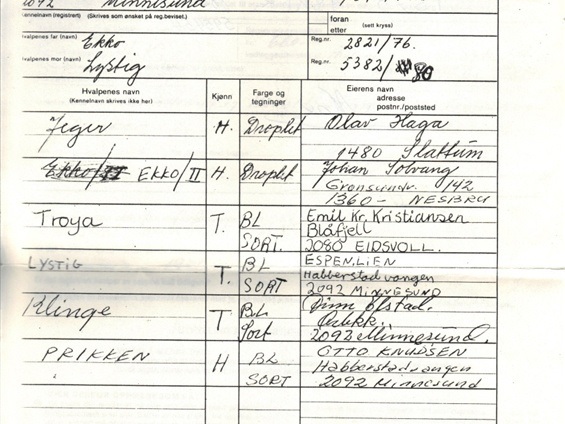 2092 Minnesund
foran
etter (sett kryss)
Kennelnavn (registrert) (Skrives som ønsket på reg.beviset.)
Hvalpenes far (navn) Ekko Reg.nr. 2821/76.
Hvalpenes mor (navn) Lystig Reg.nr. 5382/80
Hvalpenes navn Kjønn Farge og Eierens navn
(Kennelnavn skrives ikke her) tegninger adresse
postnr./poststed
Jeger H. Droplet Olav Haga
1480 Slattum
Ekko/II EKKO/II H. Droplet Johan Solvang
Gronsundv. 142
1360- NESBRU
Troya T. BL Emil Kr. Kristiansen
Blåfjell
SORT. 2080 EIDSVOLL.
LYSTIG T. BL ESPEN LIEN
SORT Habberstad vangen
2092 MINNESUND
Klinge T BL Ølstad.
Sort 2092 Minnesund.
PRIKKEN H BL OTTO KNUDSEN
Habberstadvangen
SORT 2092 Minnesund